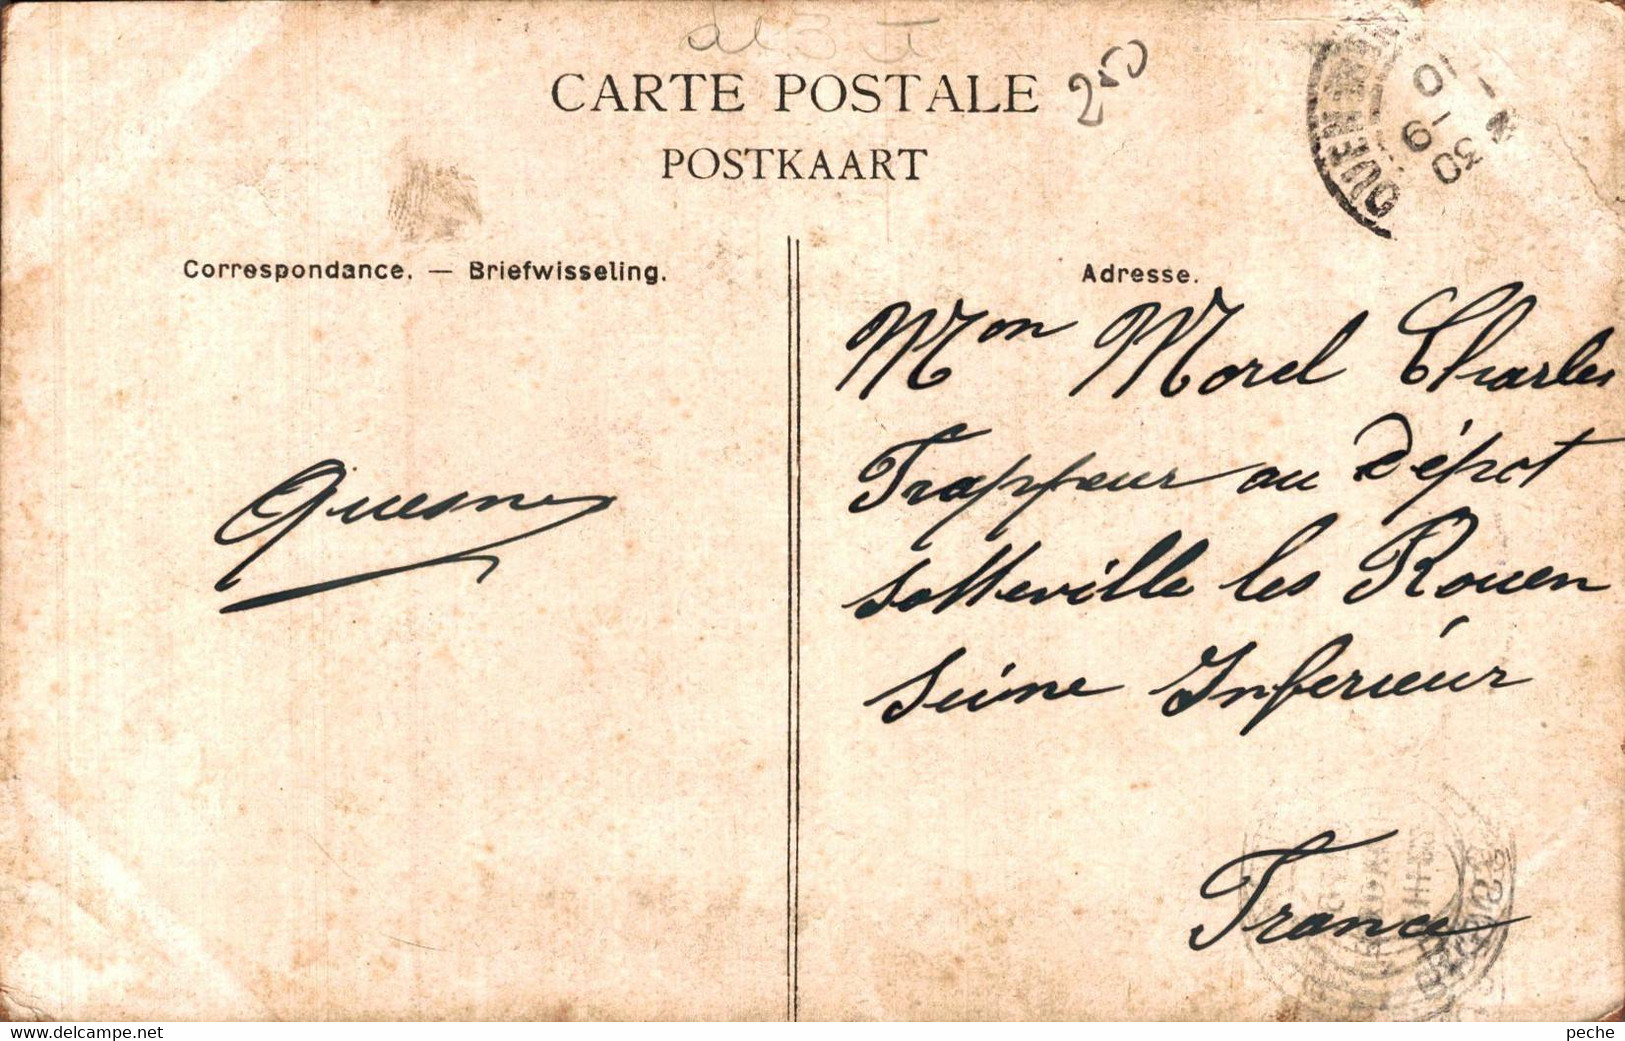 CARTE POSTALE
250
POSTKAART
30
9 10
Correspondance. — Briefwisseling.
Adresse.
Mon Morel Charles
Trappeur au Dépot
Sotteville les Rouen
Seine Inferieur
France
Quesne
peche